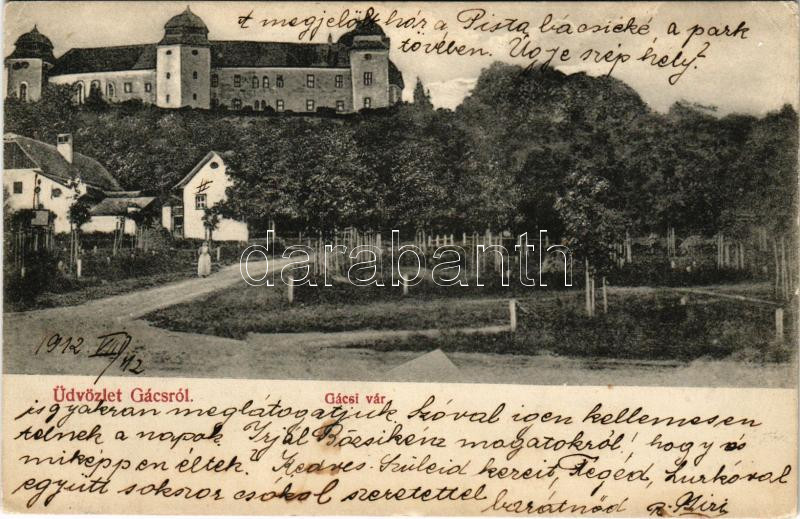 # megjelölt ház a Pista bácsiéké, a park
tövében. Ugye szép hely?
#
darabanth
1912 VII/12
Üdvözlet Gácsról.
Gácsi vár
is gyakran meglátogatjuk Szóval igen kellemesen
telnek a napok Irjál Böcsikénz magatokról! hogy s
miképpen éltek? Kedves Szüleid kezeit, Tégéd, Zurkóval
együtt sokszor csókol szeretettel
barátnőd
Piri